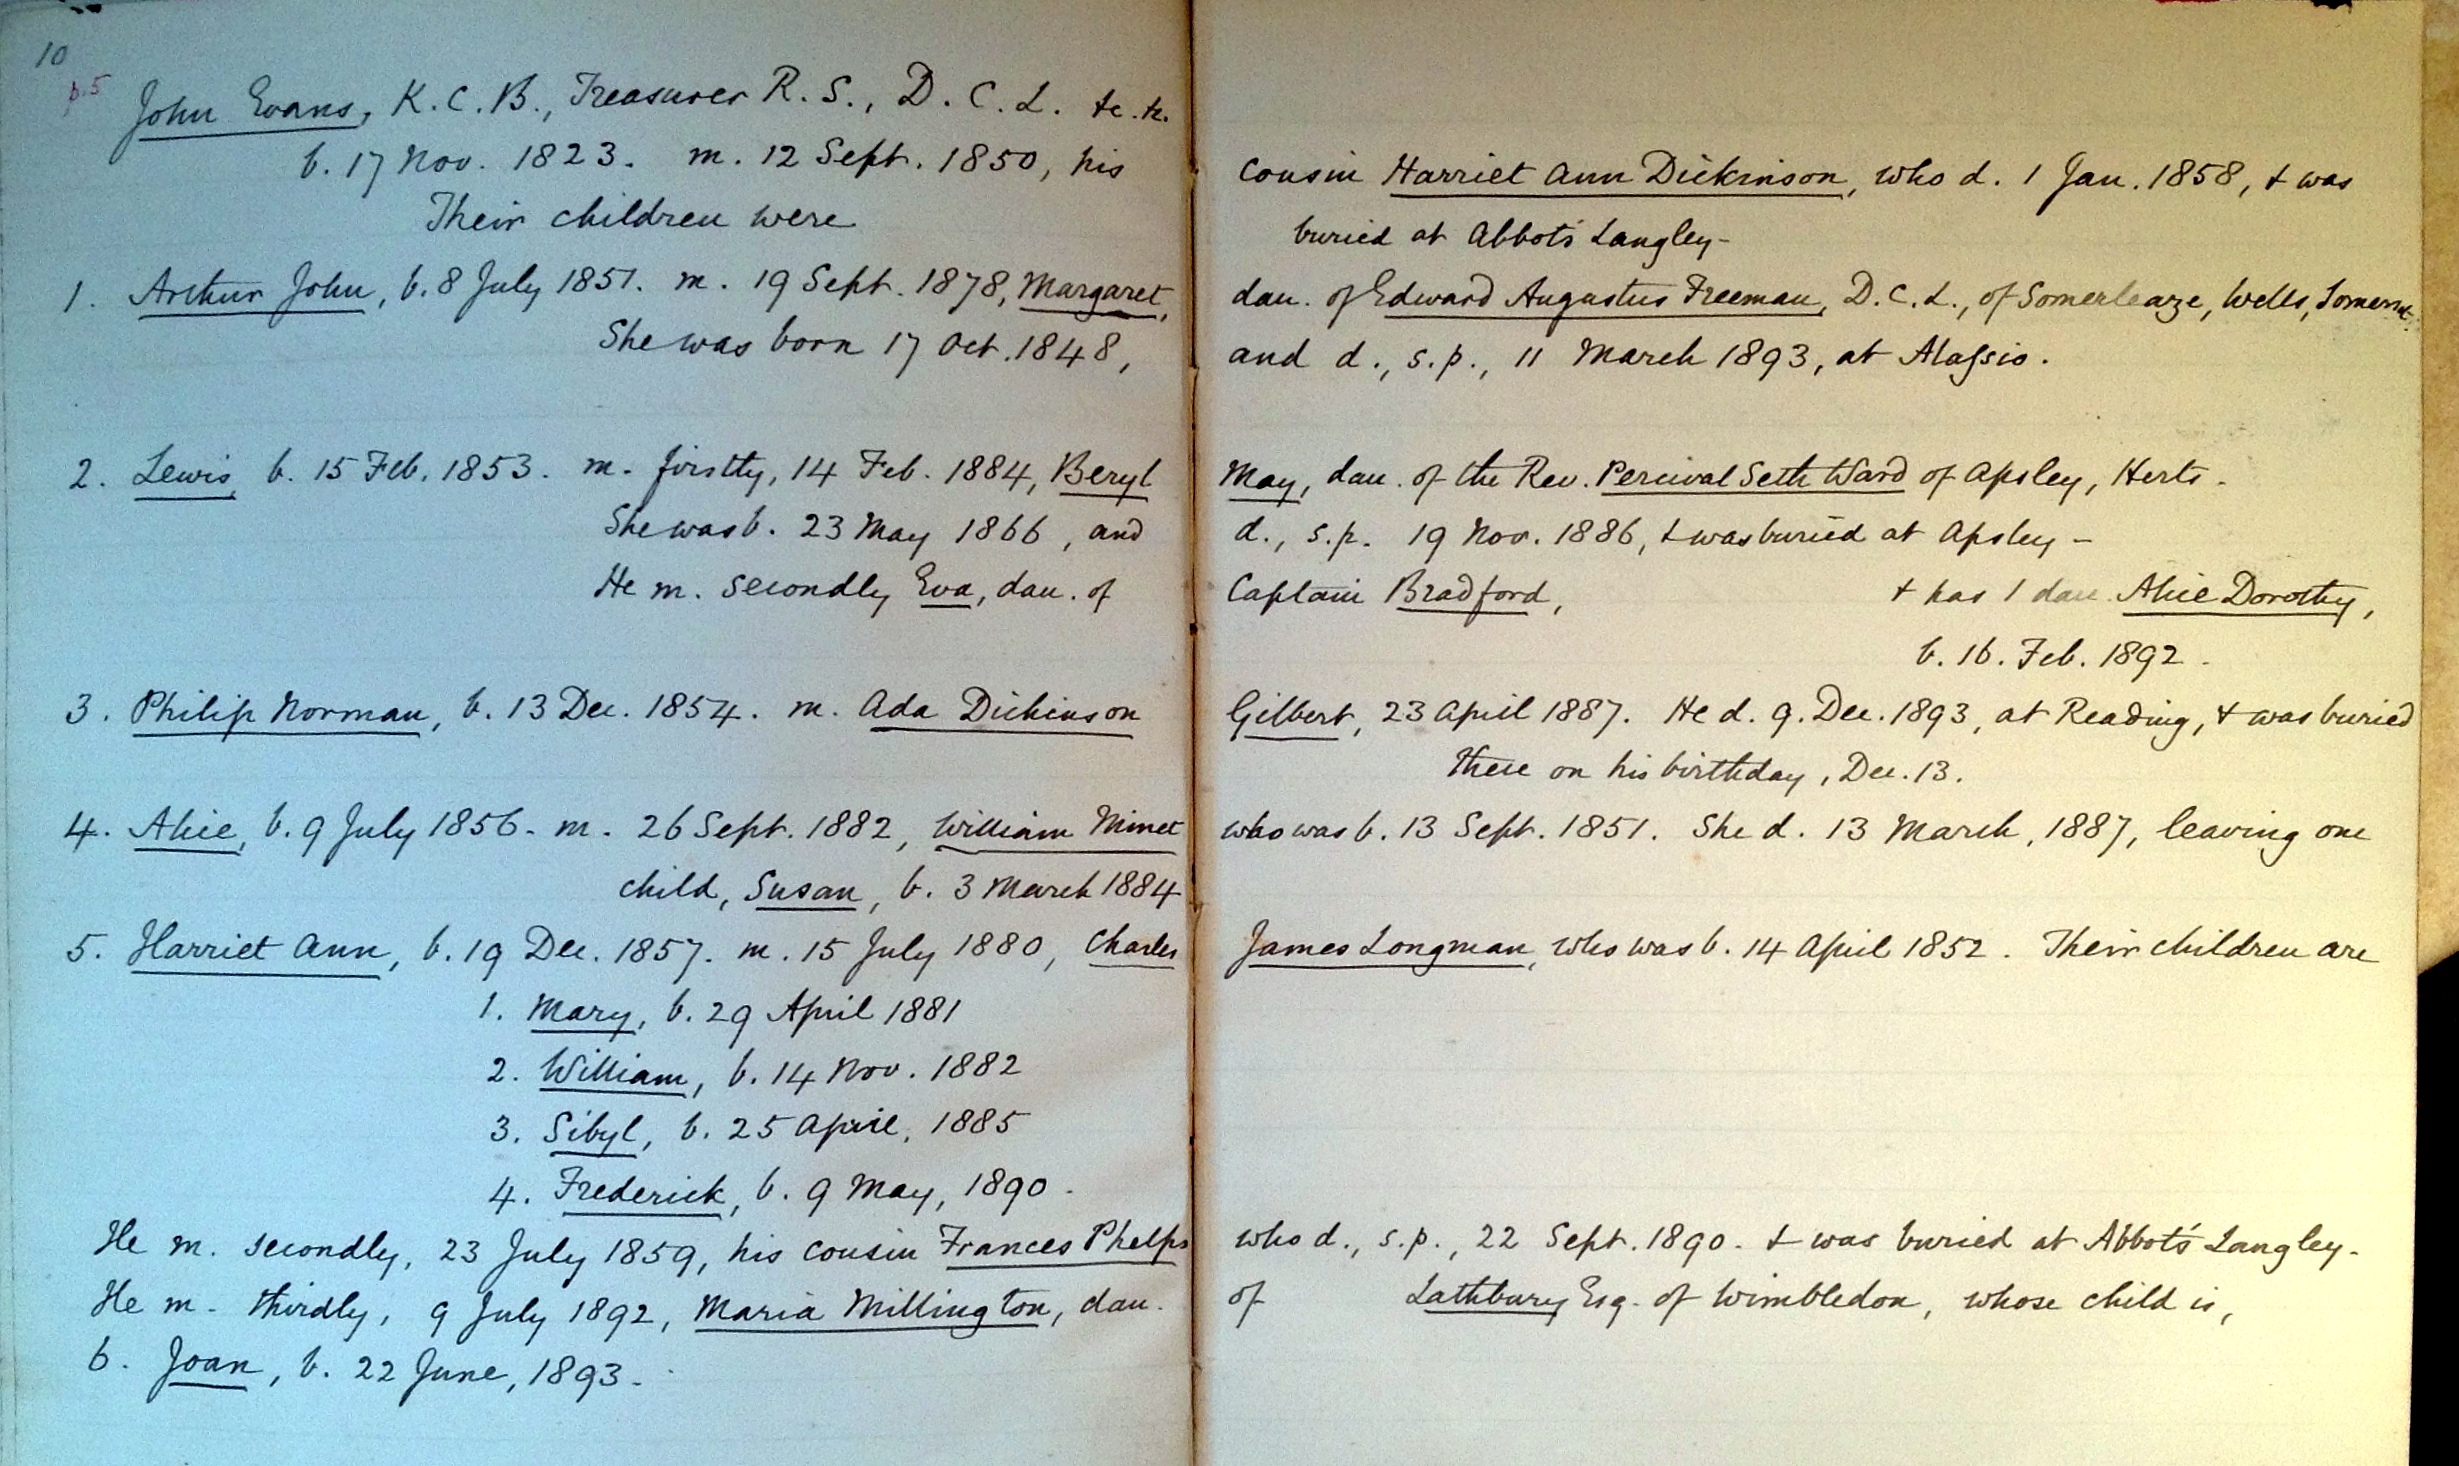 10
p. 5
John Evans, K. C. B., Treasurer R. S., D. C. L. &c. &c.
b. 17 Nov. 1823. m. 12 Sept. 1850, his cousin Harriet Ann Dickinson, who d. 1 Jan. 1858, & was
Their children were buried at Abbots Langley -
1. Arthur John, b. 8 July 1851. m. 19 Sept. 1878, Margaret, dau. of Edward Augustus Freeman, D. C. L., of Somerleaze, Wells, Somerset.
She was born 17 Oct. 1848, and d., s. p., 11 March 1893, at Alassio.
2. Lewis, b. 15 Feb. 1853. m. firstly, 14 Feb. 1884, Beryl May, dau. of the Rev. Percival Seth Ward of Apsley, Herts -
She was b. 23 May 1866, and d., s. p. 19 Nov. 1886, & was buried at Apsley -
He m. secondly Eva, dau. of Captain Bradford, & has 1 dau. Alice Dorothy,
b. 16. Feb. 1892 -
3. Philip Norman, b. 13 Dec. 1854. m. Ada Dickinson Gilbert, 23 April 1887. He d. 9. Dec. 1893, at Reading, & was buried
there on his birthday, Dec. 13.
4. Alice, b. 9 July 1856 - m. 26 Sept. 1882, William Minet who was b. 13 Sept. 1851. She d. 13 March, 1887, leaving one
child, Susan, b. 3 March 1884
5. Harriet Ann, b. 19 Dec. 1857. m. 15 July 1880, Charles James Longman, who was b. 14 April 1852. Their children are
1. Mary, b. 29 April 1881
2. William, b. 14 Nov. 1882
3. Sibyl, b. 25 April, 1885
4. Frederick, b. 9 May, 1890 -
He m. secondly, 23 July 1859, his cousin Frances Phelps who d., s. p., 22 Sept. 1890 - & was buried at Abbot's Langley -
He m - thirdly, 9 July 1892, Maria Millington, dau. of Lathbury Esq. of Wimbledon, whose child is,
6. Joan, b. 22 June, 1893 -